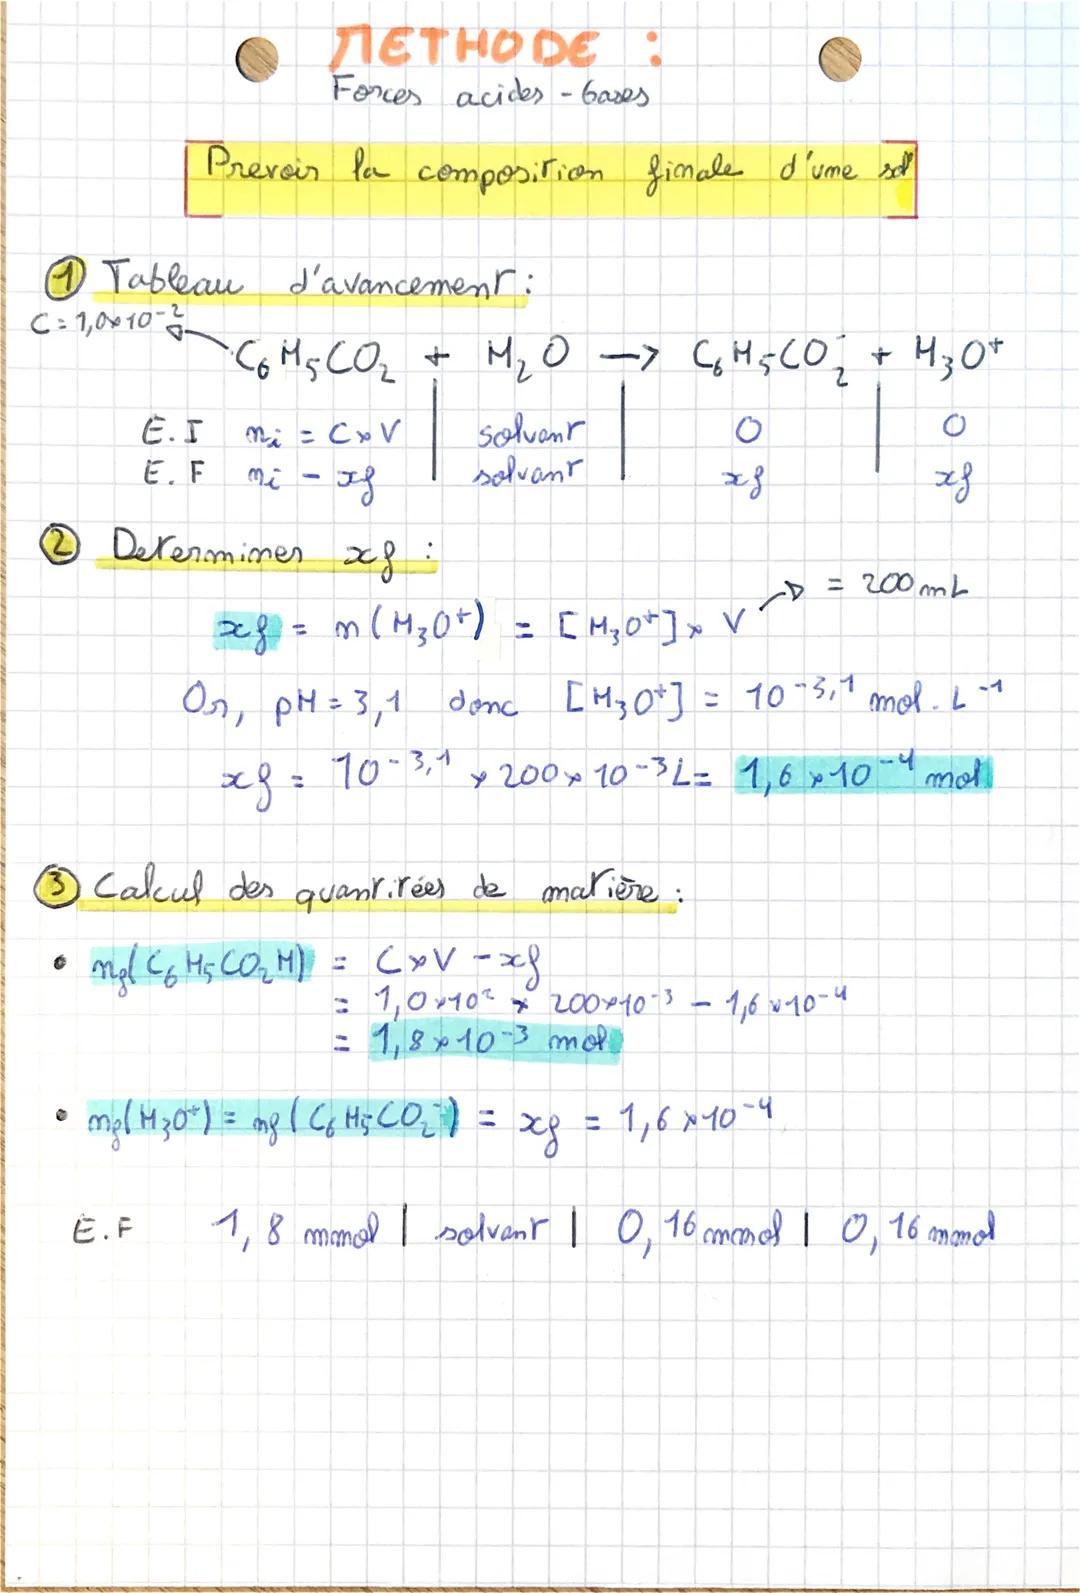 METHODE :
Forces acides - bases
Prevoir la composition finale d'une sol
① Tableau d'avancement :
C = 1,0×10⁻²
C₆H₅CO₂ + H₂O → C₆H₅CO₂⁻ + H₃O⁺
E.I nᵢ = C×V | solvant | 0 | 0
E.F nᵢ - xf | solvant | xf | xf
② Determiner xf :
= 200 mL
xf = n(H₃O⁺) = [H₃O⁺]× V
Or, pH = 3,1 donc [H₃O⁺] = 10⁻³,¹ mol.L⁻¹
xf = 10⁻³,¹ × 200×10⁻³L = 1,6×10⁻⁴ mol
③ Calcul des quantitées de matière :
• nf(C₆H₅CO₂H) = C×V - xf
= 1,0×10² × 200×10⁻³ - 1,6×10⁻⁴
= 1,8×10⁻³ mol
• nf(H₃O⁺) = nf(C₆H₅CO₂⁻) = xf = 1,6×10⁻⁴
E.F 1,8 mmol | solvant | 0,16 mmol | 0,16 mmol